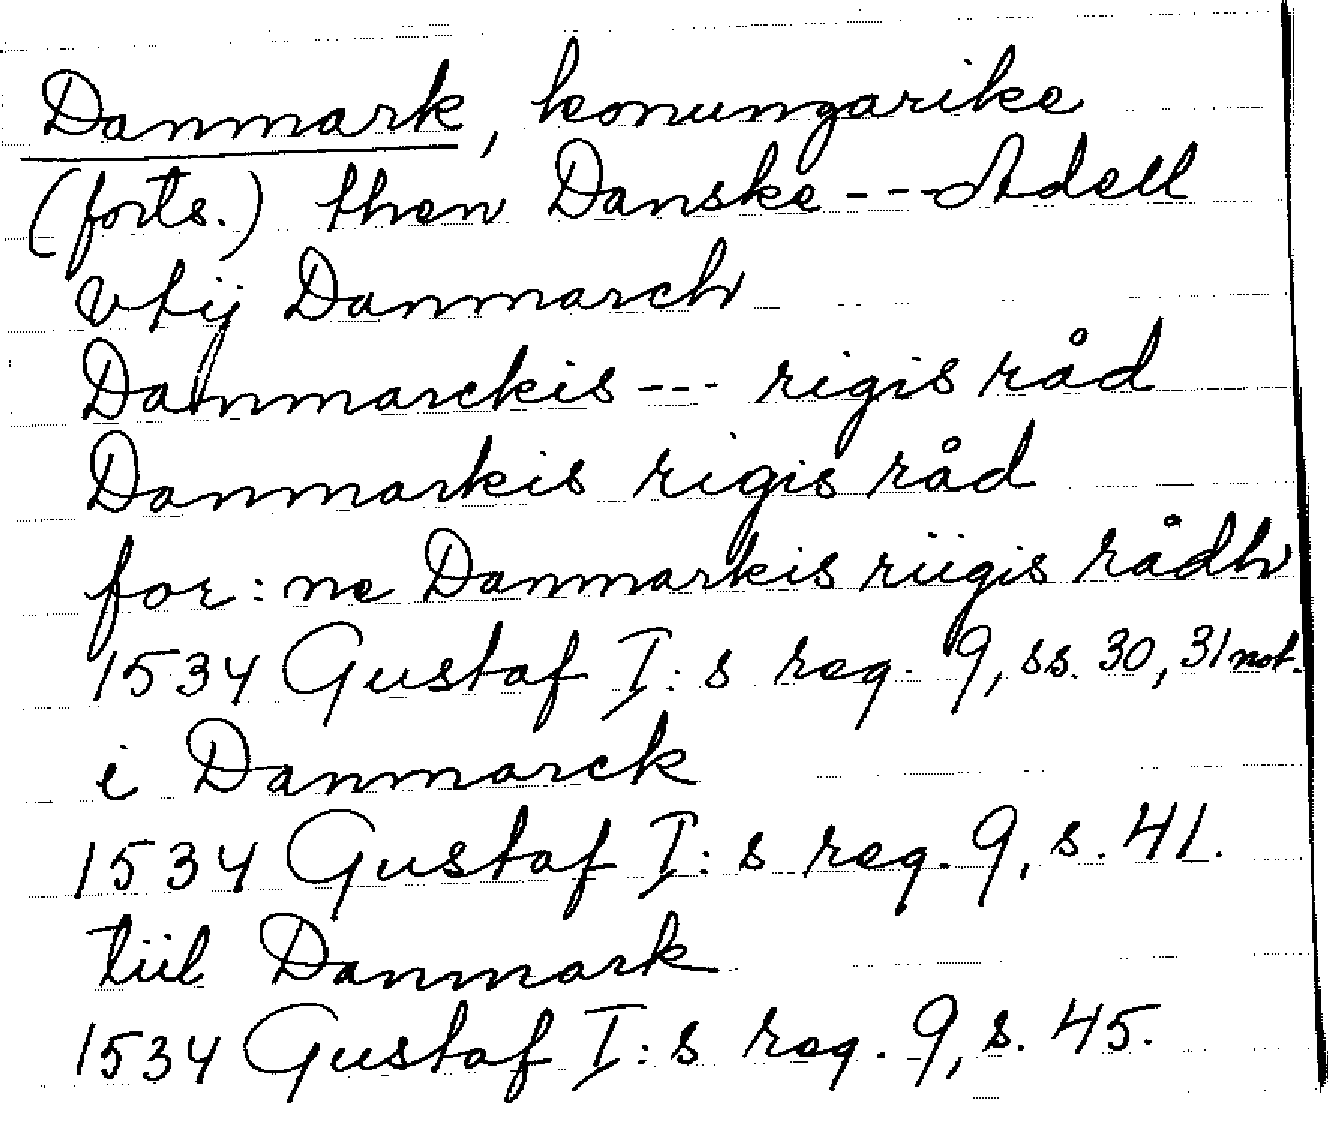 Danmark, konungarike
(forts.) then Danske --- Adell
vtij Danmarch
Danmarckis --- rigis råd
Danmarkis rigis råd
for: ne Danmarkis riigis rådh
1534 Gustaf I: s reg. 9, ss. 30, 31 not.
i Danmarck
1534 Gustaf I: s reg. 9, s. 41.
tiil Danmark
1534 Gustaf I: s reg. 9, s. 45.